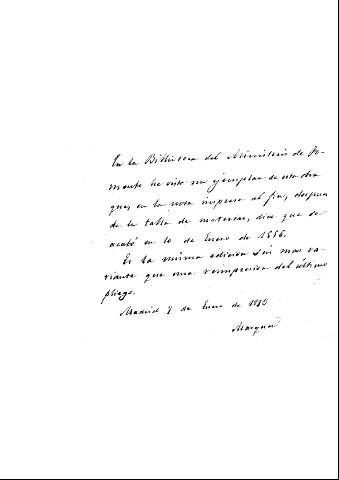 En la Biblioteca del Ministerio de Fo-
mento he visto un ejemplar de esta obra
que, en la nota impresa al fin, despues
de la tabla de materias, dice que se
acabó en 10 de Enero de 1556.
Es la misma edicion sin mas va-
riante que una reimpresion del último
pliego.
Madrid 8 de Enero de